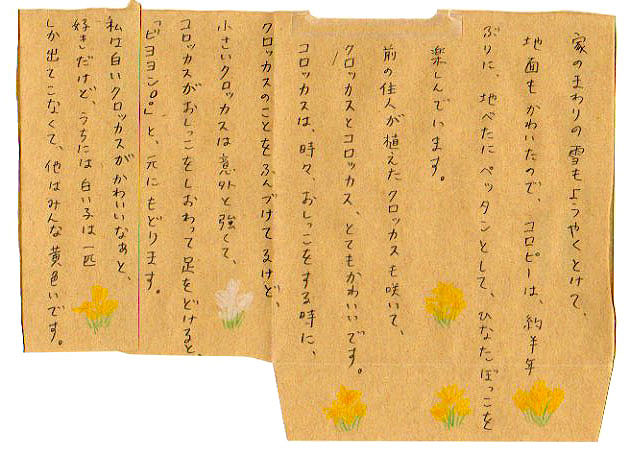 家のまわりの雪もようやくとけて、
地面もかわいたので、コロピーは、約半年
ぶりに、地べたにペッタンとして、ひなたぼっこを
楽しんでいます。
前の住人が植えたクロッカスも咲いて、
クロッカスとコロッカス、とてもかわいいです。
コロッカスは、時々、おしっこをする時に、
クロッカスのことをふんづけてるけど、
小さいクロッカスは意外と強くて、
コロッカスがおしっこをしおわって足をどけると、
「ピヨヨンロ。」と、元にもどります。
私は白いクロッカスがかわいいなぁと、
好きだけど、うちには白い子は一匹
しか出てこなくて、他はみんな黄色いです。